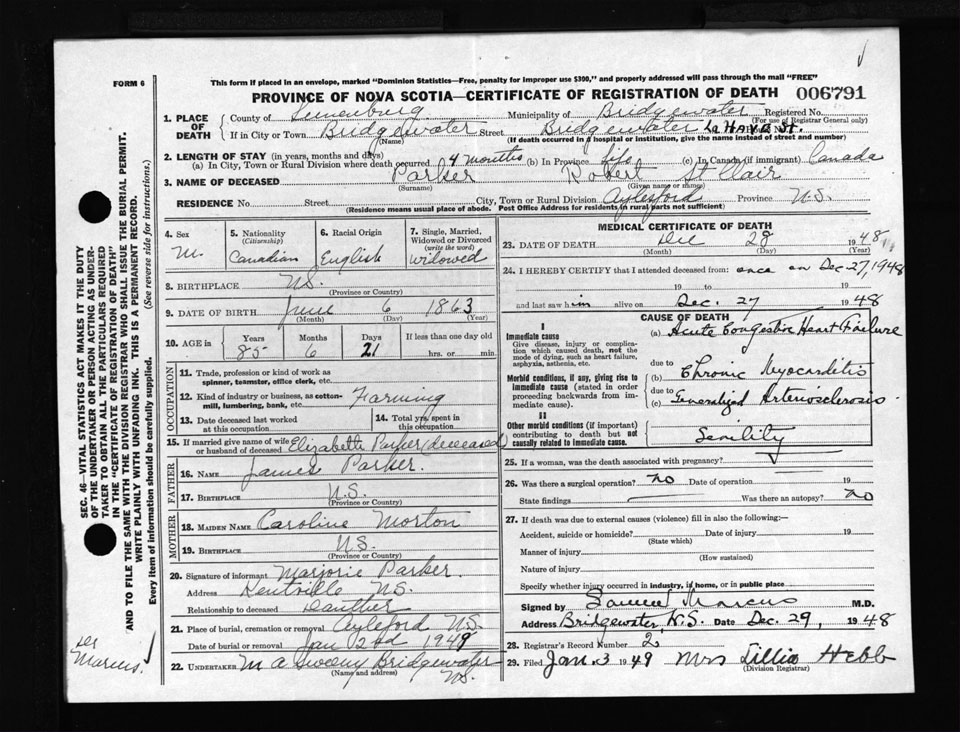 FORM 6
This form if placed in an envelope, marked "Dominion Statistics—Free, penalty for improper use $300," and properly addressed will pass through the mail "FREE"
PROVINCE OF NOVA SCOTIA—CERTIFICATE OF REGISTRATION OF DEATH 006791
1. PLACE OF DEATH County of Lunenburg Municipality of Bridgewater Registered No.
(For use of Registrar General only)
If in City or Town Bridgewater Street Bridgewater La Have St.
(Name) (If death occurred in a hospital or institution, give the name instead of street and number)
2. LENGTH OF STAY (in years, months and days)
(a) In City, Town or Rural Division where death occurred 4 months (b) In Province life (c) In Canada (if immigrant) Canada
3. NAME OF DECEASED Parker Robert St Clair
(Surname) (Given name or names)
RESIDENCE No. Street City, Town or Rural Division Aylesford Province N.S.
(Residence means usual place of abode. Post Office Address for residents in rural parts not sufficient)
4. Sex
M.
5. Nationality
(Citizenship)
Canadian
6. Racial Origin
English
7. Single, Married, Widowed or Divorced
(write the word)
Widowed
8. BIRTHPLACE N.S.
(Province or Country)
9. DATE OF BIRTH June 6 1863
(Month) (Day) (Year)
10. AGE in Years Months Days If less than one day old
85 6 21 hrs. or min.
OCCUPATION
11. Trade, profession or kind of work as spinner, teamster, office clerk, etc.
12. Kind of industry or business, as cotton-mill, lumbering, bank, etc. Farming
13. Date deceased last worked at this occupation
14. Total yrs. spent in this occupation
15. If married give name of wife or husband of deceased Elizabeth Parker (deceased)
FATHER
16. NAME James Parker.
17. BIRTHPLACE N.S.
(Province or Country)
MOTHER
18. MAIDEN NAME Caroline Morton
19. BIRTHPLACE N.S.
(Province or Country)
20. Signature of informant Marjorie Parker.
Address Kentville N.S.
Relationship to deceased Dauther
21. Place of burial, cremation or removal Ayleford N.S.
Date of burial or removal Jan 2nd 1949
22. UNDERTAKER M A Sweeny Bridgewater N.S.
(Name and address)
MEDICAL CERTIFICATE OF DEATH
23. DATE OF DEATH Dec 28 1948
(Month) (Day) (Year)
24. I HEREBY CERTIFY that I attended deceased from: once on Dec 27, 1948
19 to 19
and last saw him alive on Dec. 27 1948
CAUSE OF DEATH
I
Immediate cause
Give disease, injury or complication which caused death, not the mode of dying, such as heart failure, asphyxia, asthenia, etc.
(a) Acute Congestive Heart Failure
Morbid conditions, if any, giving rise to immediate cause (stated in order proceeding backwards from immediate cause).
due to
(b) Chronic Myocarditis
due to
(c) Generalized Arteriosclerosis
II
Other morbid conditions (if important) contributing to death but not causally related to immediate cause.
Senility
25. If a woman, was the death associated with pregnancy?
26. Was there a surgical operation? no Date of operation 19
State findings Was there an autopsy? no
27. If death was due to external causes (violence) fill in also the following:—
Accident, suicide or homicide? Date of injury 19
(State which)
Manner of injury
(How sustained)
Nature of injury
Specify whether injury occurred in industry, in home, or in public place
Signed by Samuel Marcus M.D.
Address Bridgewater, N.S. Date Dec. 29, 1948
28. Registrar's Record Number 2
29. Filed Jan. 3 1949 Mrs Lillia Hebb
(Division Registrar)
SEC. 46—VITAL STATISTICS ACT MAKES IT THE DUTY
OF THE UNDERTAKER OR PERSON ACTING AS UNDER-
TAKER TO OBTAIN ALL THE PARTICULARS REQUIRED
IN THE "CERTIFICATE OF REGISTRATION OF DEATH"
AND TO FILE THE SAME WITH THE DIVISION REGISTRAR WHO SHALL ISSUE THE BURIAL PERMIT.
WRITE PLAINLY WITH UNFADING INK. THIS IS A PERMANENT RECORD.
Every item of information should be carefully supplied. (See reverse side for instructions.)
Marcus